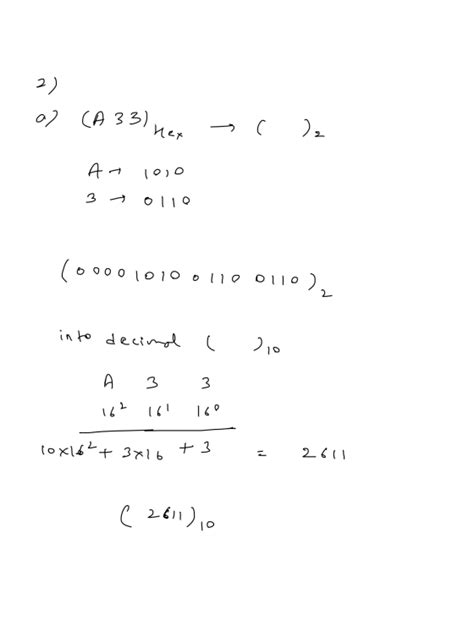 2)
a) (A33)Hex → ( )2
A → 1010
3 → 0110
(0000 1010 0110 0110)2
into decimal ( )10
A 3 3
16² 16¹ 16⁰
10×16² + 3×16 + 3 = 2611
(2611)10